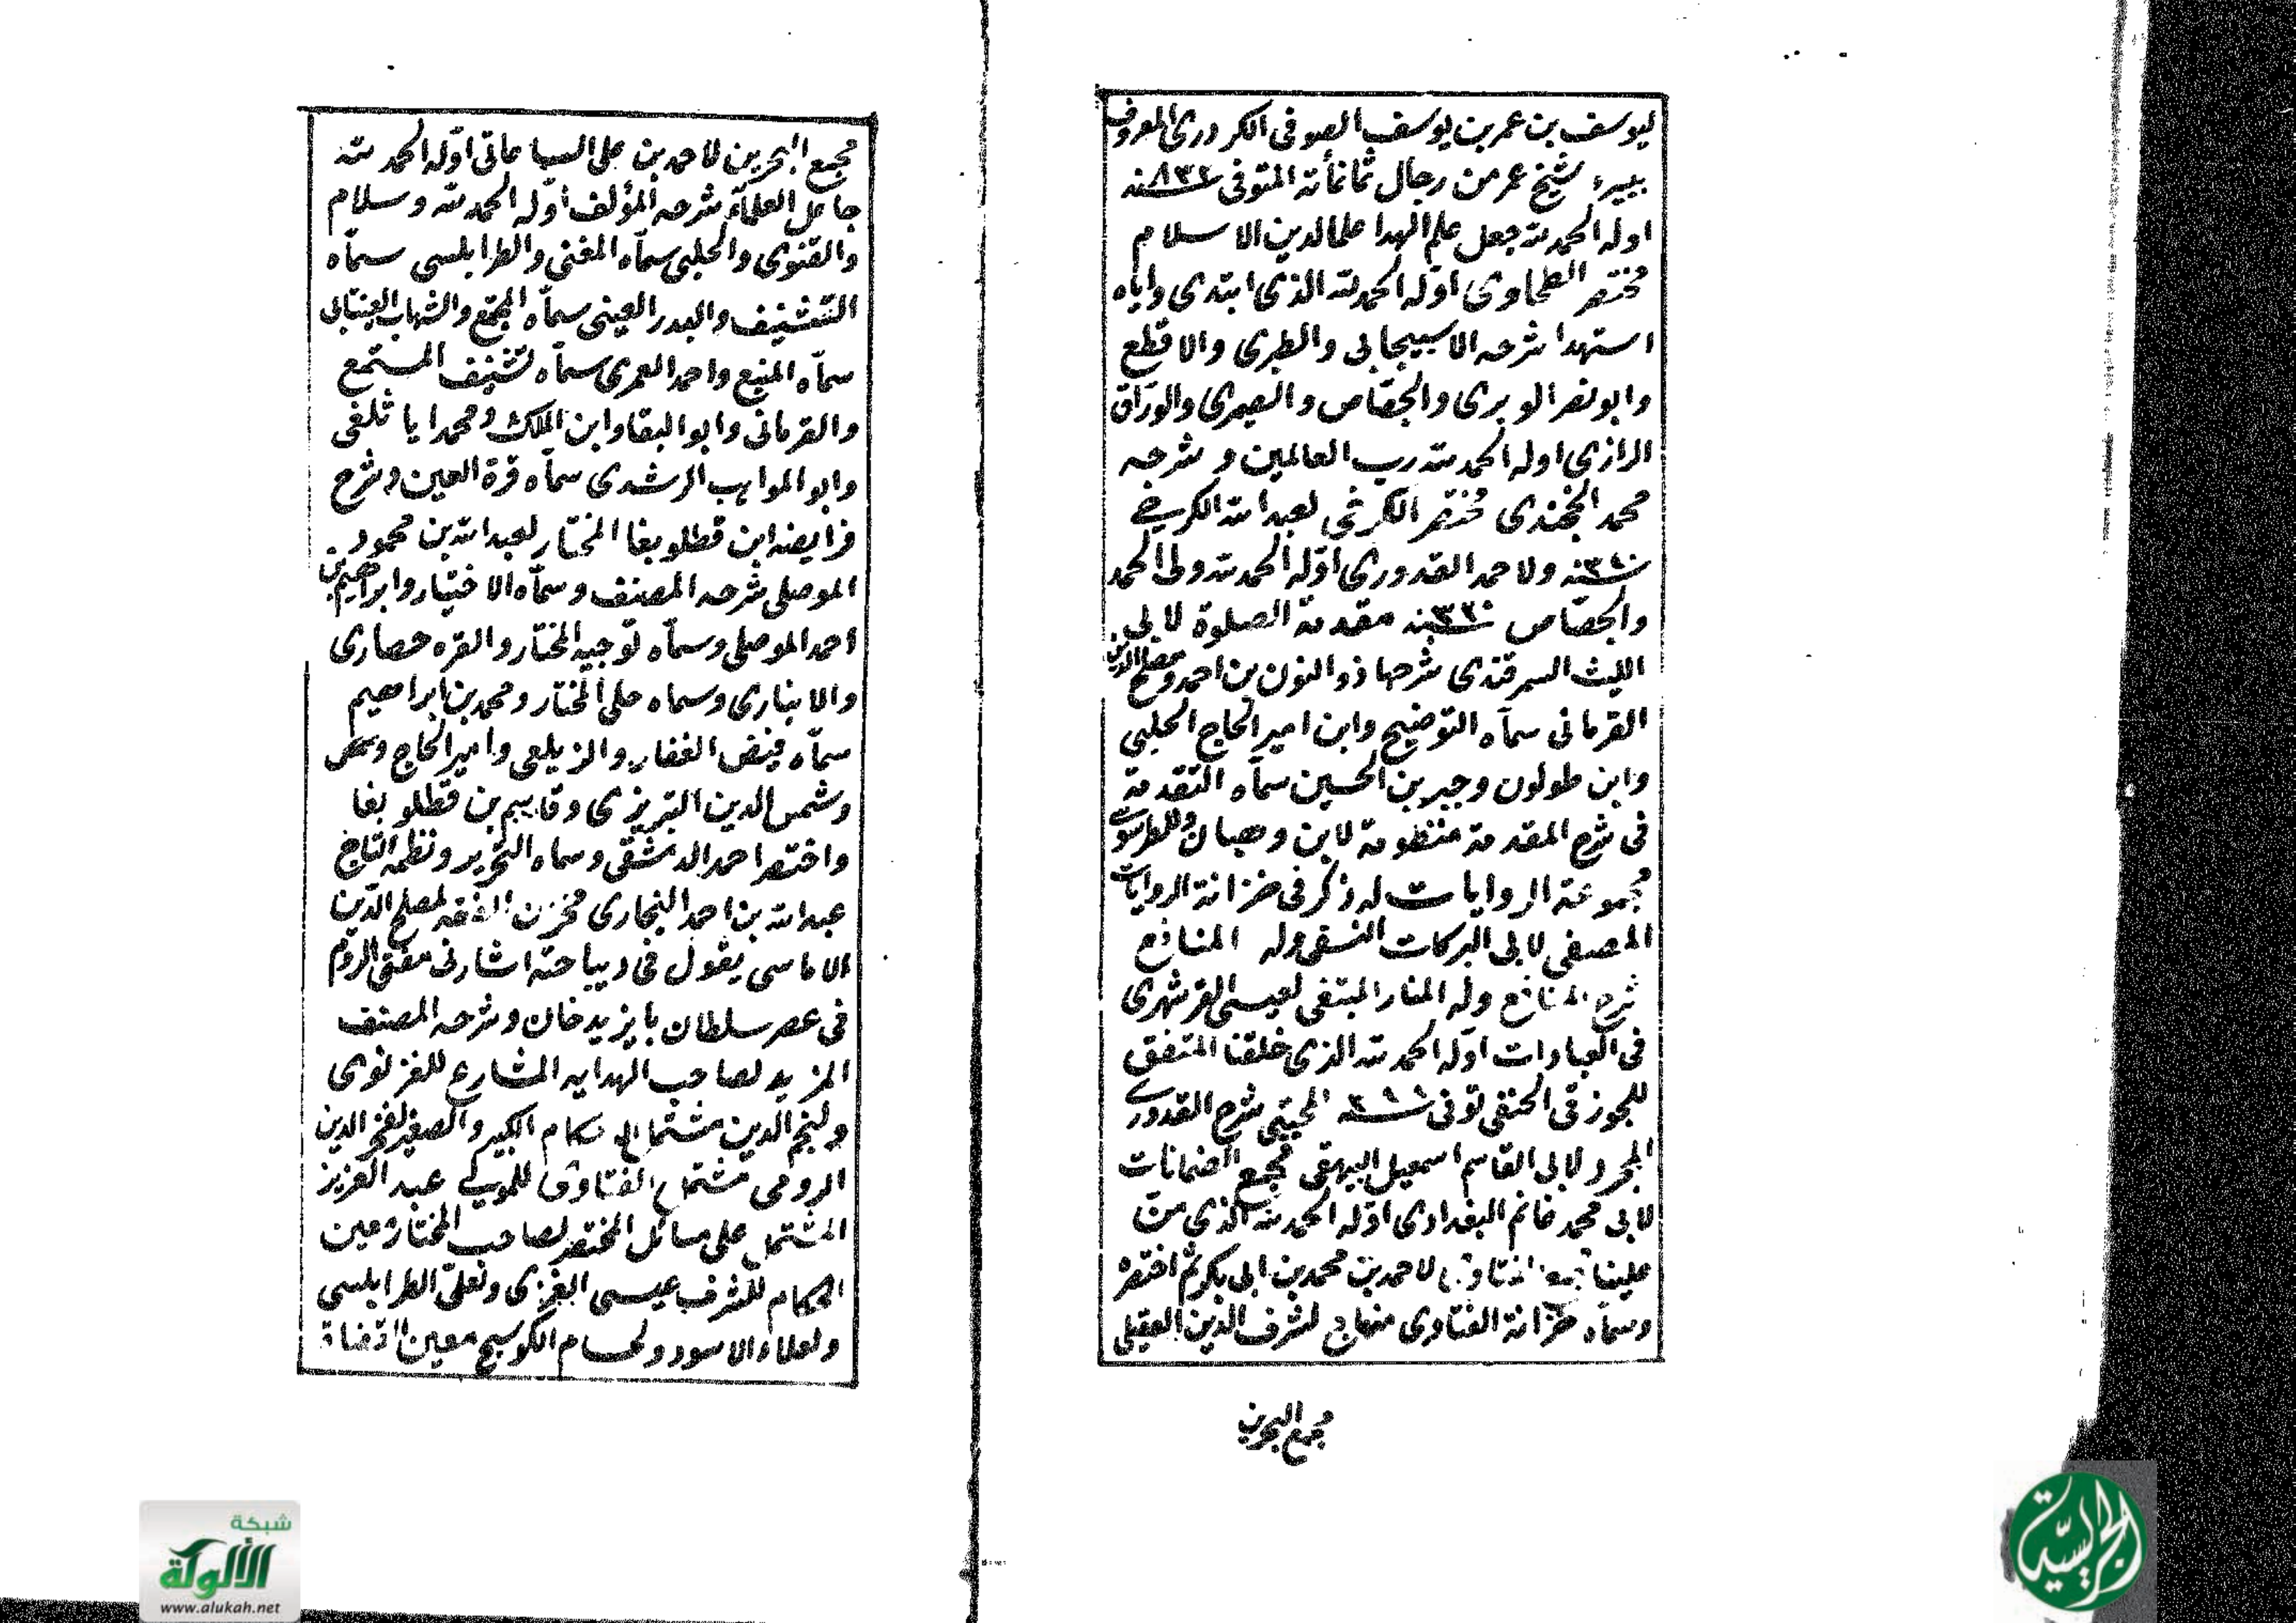 ليوسف بن عمر بن يوسف الصوفى الكردورى المعروف
ببيره شيخ عمر من رجال ثمانمأئة المتوفى سنة ٨٣٢
اوله الحمد لله جعل علم الهدا علما لدين الاسلام
مختصر الطحاوى اوله الحمد لله الذى ابتدى واياه
استهدا شرحه الاسبيجابى والطبرى والاقطع
وابونصر الوبرى والجصّاص والصيمرى والورّاق
الرازى اوله الحمد لله رب العالمين و شرحه
محمد الخجندى مختصر الكرخى لعبد الله الكرخى
سنة ٣٤٠ ولاحمد القدورى اوّله الحمد لله ولى الحمد
والجصّاص سنة مقدمة الصلوة لابى
الليث السمرقندى شرحها ذو النون بن احمد ومصلح الدين
القرمانى سمآه التوضيح وابن امير الحاج الحلبى
وابن طولون وجبر بن الحسين سمآه التقدمة
فى شرح المقدمة منظومة لابن وهبان وللطرسوسى
مجموعة الروايات له ذكر فى خزانة الروايات
المصفى لابى البركات النسفى وله المنافع
شرح المنافع وله المنار المبتغى لعيسى القرشهرى
فى العبادات اوّله الحمد لله الذى خلقنا المتفق
للجوزقى الحنفى توفى سنة ٣٨٨ المجتبى شرح القدورى
المجرد لابى القاسم اسمعيل البيهقى مجمع الضمانات
لابى محمد غانم البغدادى اوّله الحمد لله الذى منّ
علينا مجمع الفتاوى لاحمد بن محمد بن ابى بكر ثم اختصره
وسمآه خزانة الفتاوى منهاج لشرف الدين العقيلى
مجمع البحرين
مجمع البحرين لاحمد بن على الساعاتى اوّله الحمد لله
جاعل العلمآء شرحه المؤلف اوّله الحمد لله وسلام
والقنوى والحلبى سمآه المغنى والطرابلسى سمآه
التشنيف والبدر العينى سمآه المجمع والشهاب العينتابى
سمآه المنبع واحمد العمرى سمآه تشنيف المستمع
والقرمانى وابو البقا وابن الملك ومحمد اياثلغى
وابو المواهب الرشدى سمآه قرة العين وشرح
فرايضه ابن قطلوبغا المختار لعبد الله بن محمود
الموصلى شرحه المصنف وسمآه الاختيار وابراهيم بن
احمد الموصلى وسمآه توجيه المختار والقره حصارى
والابنارى وسماه على المختار ومحمد بن ابراهيم
سمآه فيض الغفار والزيلعى وامير الحاج
وشمس الدين التبريزى وقاسم بن قطلوبغا
واختصر احمد الدمشقى وسماه التحرير ونظمه التاج
عبد الله بن احمد البخارى مخزن الفقه لمصلح الدّين
الاماسى يقول فى ديباجته اشارنى مفتى الروم
فى عصر سلطان بايزيد خان وشرحه المصنف
المزيد لصاحب الهدايه المشارع للغزنوى
ولنجم الدين مشتمل الاحكام الكبير والصغير لفخر الدين
الرومى مشتمل الفتاوى للمولى عبد العزيز
المشتمل على مسائل المختصر لصاحب المختار معين
الحكام للشرف عيسى الغزى ولعلى الطرابلسى
ولعلاء الاسود ولحسام الكوسج معين القضاة
شبكة
الألوكة
www.alukah.net